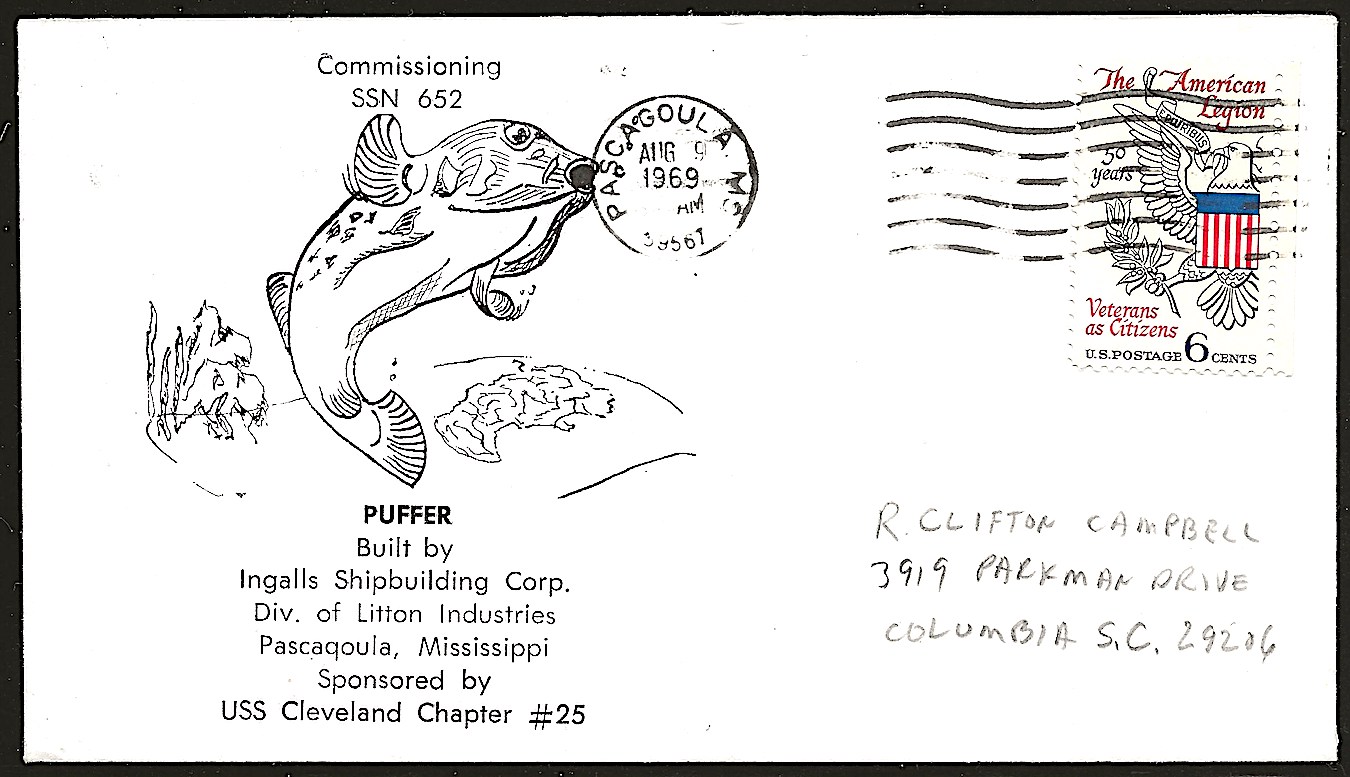 Commissioning
SSN 652
PASCAGOULA MS
AUG 9
1969
AM
39567
The American
Legion
E PLURIBUS
50
years
Veterans
as Citizens
U.S. POSTAGE 6 CENTS
PUFFER
Built by
Ingalls Shipbuilding Corp.
Div. of Litton Industries
Pascagoula, Mississippi
Sponsored by
USS Cleveland Chapter #25
R. CLIFTON CAMPBELL
3919 PARKMAN DRIVE
COLUMBIA S.C. 29206